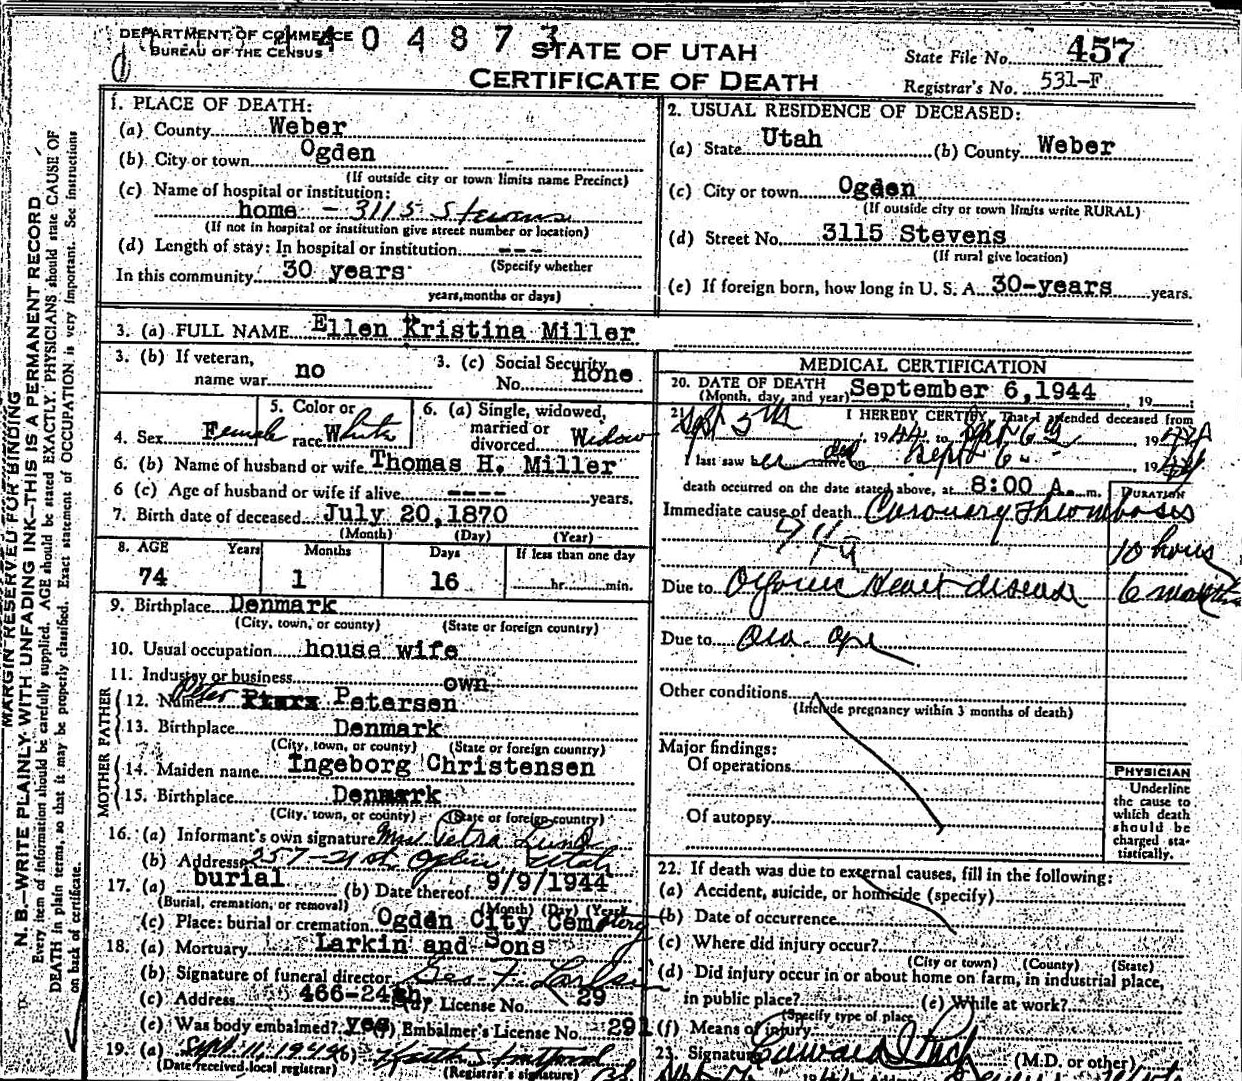 DEPARTMENT OF COMMERCE
BUREAU OF THE CENSUS
404873
STATE OF UTAH
CERTIFICATE OF DEATH
State File No. 457
Registrar's No. 531-F
MARGIN RESERVED FOR BINDING
N. B.—WRITE PLAINLY WITH UNFADING INK—THIS IS A PERMANENT RECORD
Every item of information should be carefully supplied. AGE should be stated EXACTLY. PHYSICIANS should state CAUSE OF
DEATH in plain terms, so that it may be properly classified. Exact statement of OCCUPATION is very important. See instructions
on back of certificate.
1. PLACE OF DEATH:
(a) County Weber
(b) City or town Ogden
(If outside city or town limits name Precinct)
(c) Name of hospital or institution:
home - 3115 Stevens
(If not in hospital or institution give street number or location)
(d) Length of stay: In hospital or institution ---
(Specify whether
In this community 30 years
years, months or days)
2. USUAL RESIDENCE OF DECEASED:
(a) State Utah (b) County Weber
(c) City or town Ogden
(If outside city or town limits write RURAL)
(d) Street No. 3115 Stevens
(If rural give location)
(e) If foreign born, how long in U. S. A. 30-years years.
3. (a) FULL NAME Ellen Kristina Miller
3. (b) If veteran, name war no
3. (c) Social Security No. none
4. Sex Female
5. Color or race White
6. (a) Single, widowed, married or divorced Widow
6. (b) Name of husband or wife Thomas H. Miller
6 (c) Age of husband or wife if alive ---- years,
7. Birth date of deceased July 20,1870
(Month) (Day) (Year)
8. AGE Years Months Days If less than one day
74 1 16 hr. min.
9. Birthplace Denmark
(City, town, or county) (State or foreign country)
10. Usual occupation house wife
11. Industry or business own
FATHER
12. Name Peter Petersen
13. Birthplace Denmark
(City, town, or county) (State or foreign country)
MOTHER
14. Maiden name Ingeborg Christensen
15. Birthplace Denmark
(City, town, or county) (State or foreign country)
16. (a) Informant's own signature Mrs Petra Lund
(b) Address 257-21st Ogden, Utah
17. (a) burial (b) Date thereof 9/9/1944
(Burial, cremation, or removal) (Month) (Day) (Year)
(c) Place: burial or cremation Ogden City Cemetery
18. (a) Mortuary Larkin and Sons
(b) Signature of funeral director Geo. F. Larkin
(c) Address 466-24th. (d) License No. 29
(e) Was body embalmed? yes (f) Embalmer's License No. 291
19. (a) Sept 11, 1944 (b)
(Date received local registrar) (Registrar's signature)
MEDICAL CERTIFICATION
20. DATE OF DEATH
(Month, day, and year) September 6,1944, 19
21. I HEREBY CERTIFY, That I attended deceased from
Sept 5th, 1944 to Sept 6th, 1944
I last saw her alive on Sept 6, 1944
death occurred on the date stated above, at 8:00 A. m.
DURATION
Immediate cause of death Coronary Thrombosis
10 hours
Due to Organic Heart disease 6 months
Due to Old age
Other conditions
(Include pregnancy within 3 months of death)
Major findings:
Of operations
Of autopsy
PHYSICIAN
Underline
the cause to
which death
should be
charged sta-
tistically.
22. If death was due to external causes, fill in the following:
(a) Accident, suicide, or homicide (specify)
(b) Date of occurrence
(c) Where did injury occur?
(City or town) (County) (State)
(d) Did injury occur in or about home on farm, in industrial place,
in public place? (e) While at work?
(Specify type of place)
(f) Means of injury
23. Signature Edward I Rich (M.D. or other)